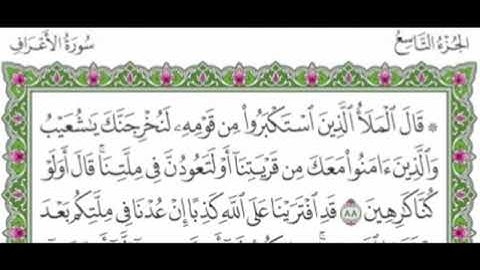 الجزء التاسع
سورة الأعراف
۞ قَالَ الْمَلَأُ الَّذِينَ اسْتَكْبَرُوا مِن قَوْمِهِ لَنُخْرِجَنَّكَ يَا شُعَيْبُ
وَالَّذِينَ ءَامَنُوا مَعَكَ مِن قَرْيَتِنَا أَوْ لَتَعُودُنَّ فِي مِلَّتِنَا ۚ قَالَ أَوَلَوْ
كُنَّا كَارِهِينَ ٨٨ قَدِ افْتَرَيْنَا عَلَى اللَّهِ كَذِبًا إِنْ عُدْنَا فِي مِلَّتِكُم بَعْدَ